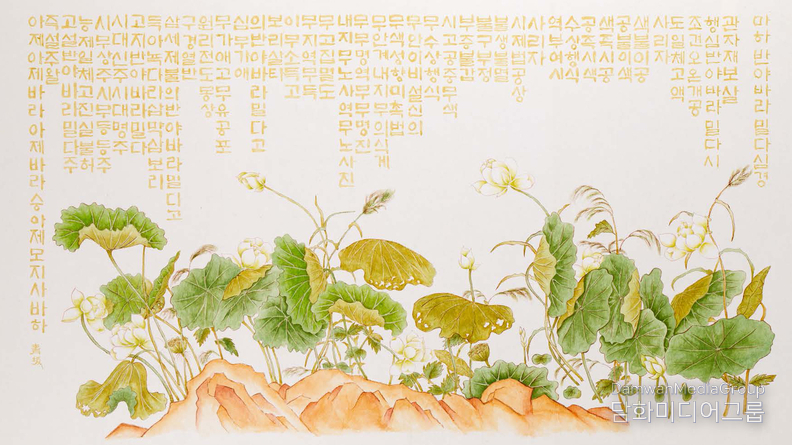 마하반야바라밀다심경
관자재보살
행심반야바라밀다시
조견오온개공
도일체고액
사리자
색불이공
공불이색
색즉시공
공즉시색
수상행식
역부여시
사리자
시제법공상
불생불멸
불구부정
부증불감
시고공중무색
무수상행식
무안이비설신의
무색성향미촉법
무안계내지무의식계
무무명역무무명진
내지무노사역무노사진
무고집멸도
무지역무득
이무소득고
보리살타
의반야바라밀다고
심무가애
무가애고무유공포
원리전도몽상
구경열반
삼세제불의반야바라밀다고
득아녹다라삼막삼보리
고지반야바라밀다
시대신주시대명주
시무상주시무등등주
능제일체고진실불허
고설반야바라밀다주
즉설주왈
아제아제바라아제바라승아제모지사바하
DamwhaMediaGroup
담화미디어그룹